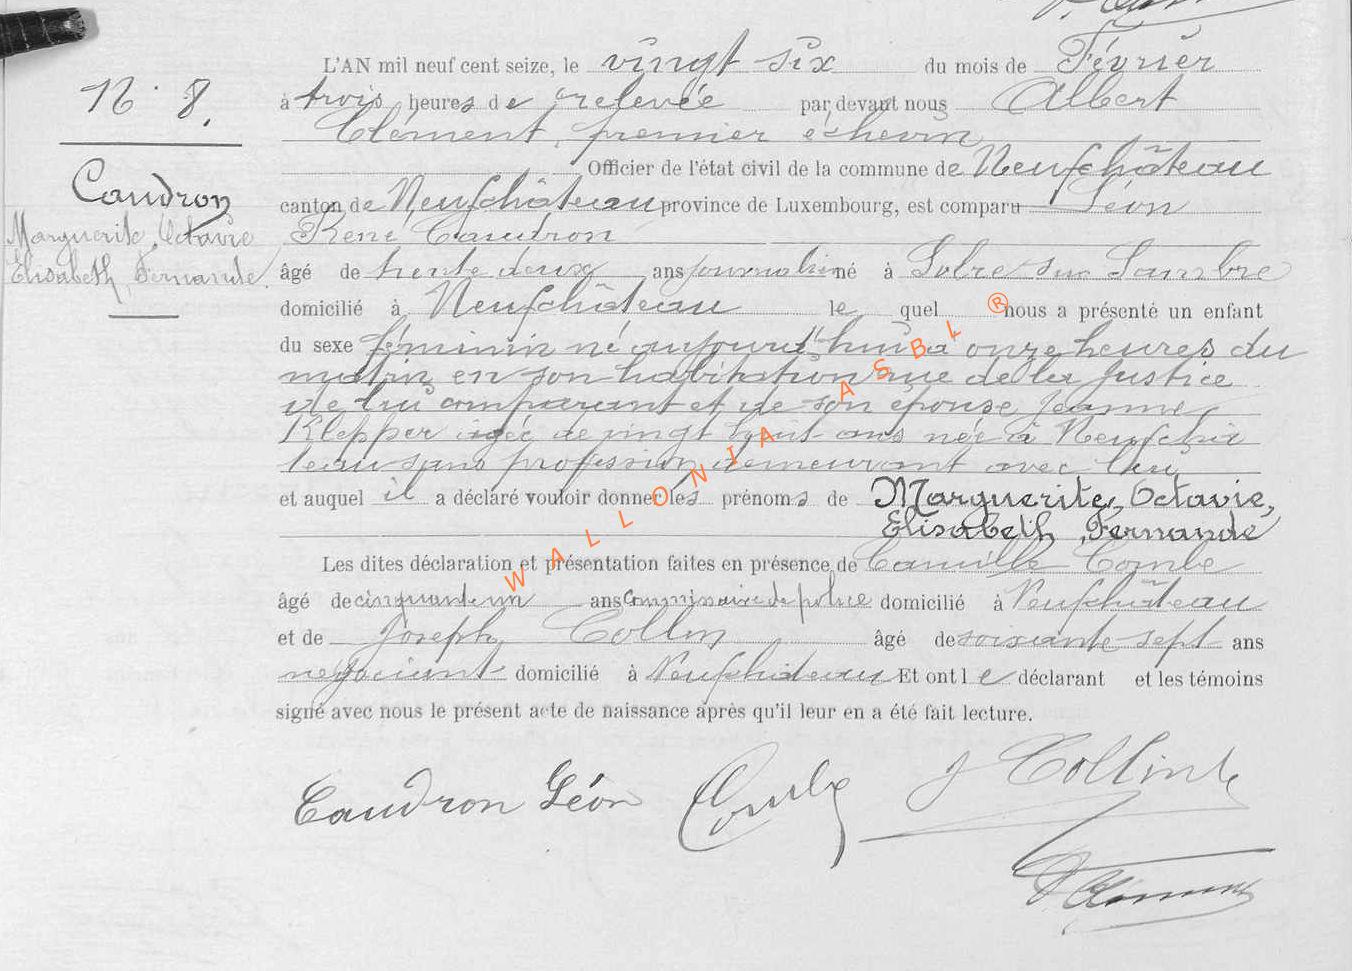 N° 8.
Caudron
Marguerite, Octavie
Elisabeth, Fernande.
L'AN mil neuf cent seize, le vingt six du mois de Février
à trois heures de relevée par devant nous Albert
Clément, premier échevin
Officier de l'état civil de la commune de Neufchâteau
canton de Neufchâteau province de Luxembourg, est comparu Léon
René Caudron
âgé de trente deux ans journalier né à Solre sur Sambre
domicilié à Neufchâteau le quel nous a présenté un enfant
du sexe féminin né aujourd'hui à onze heures du
matin en son habitation rue de la Justice
de lui comparant et de son épouse Jeanne
Klepper âgée de vingt huit ans née à Neufchâ
teau sans profession demeurant avec lui
et auquel il a déclaré vouloir donner les prénoms de Marguerite, Octavie,
Elisabeth, Fernande
Les dites déclaration et présentation faites en présence de Camille Combe
âgé de cinquante un ans Commissaire de police domicilié à Neufchâteau
et de Joseph Collin âgé de soixante sept ans
négociant domicilié à Neufchâteau Et ont le déclarant et les témoins
signé avec nous le présent acte de naissance après qu'il leur en a été fait lecture.
Caudron Léon Combe J Collin
A Clément
WALLONIA ASBL ®